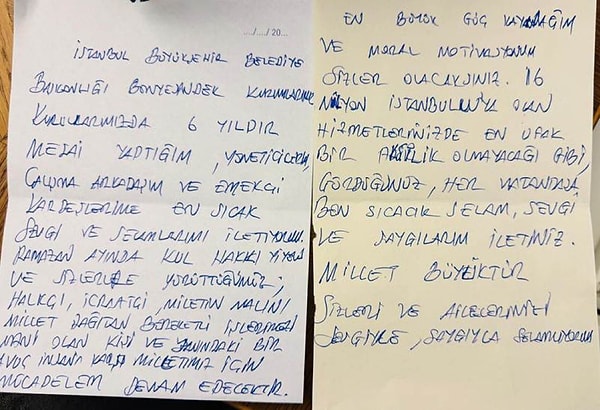 ..../..../ 20...
İSTANBUL BÜYÜKŞEHİR BELEDİYE
BAŞKANLIĞI BÜNYESİNDEKİ
KURULLARIMIZDA 6 YILDIR
MESAİ YAPTIĞIM, YÖNETİCİLERİM,
ÇALIŞMA ARKADAŞIM VE EMEKÇİ
KARDEŞLERİME EN SICAK
SEVGİ VE SELAMLARIMI İLETİYORUM.
RAMAZAN AYINDA KUL HAKKI YİYEN
VE SİZLERLE YÜRÜTTÜĞÜMÜZ,
HALKÇI, İCRAATÇI, MİLLETİN MALINI
MİLLETE DAĞITAN BEREKETLİ İŞLERİMİZE
MANİ OLAN KİŞİ VE YANINDAKİ BİR
AVUÇ İNSANA KARŞI MİLLETİMİZ İÇİN
MÜCADELEM DEVAM EDECEKTİR.
EN BÜYÜK GÜÇ KAYNAĞIM
VE MORAL MOTİVASYONUM
SİZLER OLACAKSINIZ. 16
MİLYON İSTANBULLUYA OLAN
HİZMETLERİNİZDE EN UFAK
BİR OLMAYACAĞI GİBİ,
GÖRDÜĞÜNÜZ, HER VATANDAŞA
BEN SICACIK SELAM, SEVGİ
VE SAYGILARIM İLETİNİZ.
MİLLET BÜYÜKTÜR
SİZLERİ VE AİLELERİNİZİ
SEVGİYLE, SAYGIYLA SELAMLIYORUM